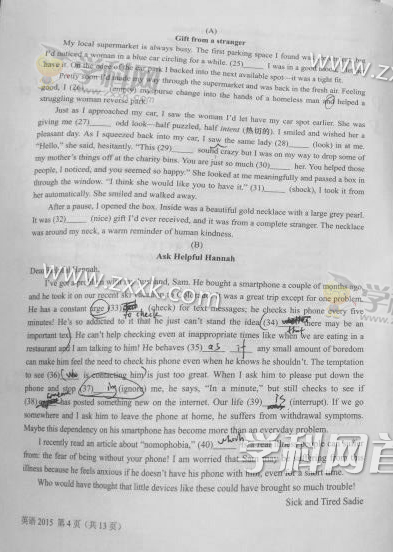 (A)
Gift from a stranger
My local supermarket is always busy. The first parking space I found was
I'd noticed a woman in a blue car circling for a while. (25)_____ I was in a good mood, I
have it. On the edge of the car park I backed into the next available spot—it was a tight fit.
Pretty soon I'd made my way through the supermarket and was back in the fresh air. Feeling
good, I (26)_____ (empty) my purse change into the hands of a homeless man and helped a
struggling woman reverse park.
Just as I approached my car, I saw the woman I'd let have my car spot earlier. She was
giving me (27)_____ odd look—half puzzled, half intent (热切的). I smiled and wished her a
pleasant day. As I squeezed back into my car, I saw the same lady (28)_____ (look) in at me.
"Hello," she said, hesitantly. "This (29)_____ sound crazy but I was on my way to drop some of
my mother's things off at the charity bins. You are just so much (30)_____ her. You helped those
people, I noticed, and you seemed so happy." She looked at me meaningfully and passed a box in
through the window. "I think she would like you to have it." (31)_____ (shock), I took it from
her automatically. She smiled and walked away.
After a pause, I opened the box. Inside was a beautiful gold necklace with a large grey pearl.
It was (32)_____ (nice) gift I'd ever received, and it was from a complete stranger. The necklace
was around my neck, a warm reminder of human kindness.
(B)
Ask Helpful Hannah
Dear Hannah,
I've got a problem with my husband, Sam. He bought a smartphone a couple of months ago
and he took it on our recent ski was a great trip except for one problem.
He has a constant urge (33) to check (check) for text messages; he checks his phone every five
minutes! He's so addicted to it that he just can't stand the idea (34) that there may be an
important text. He can't help checking even at inappropriate times like when we are eating in a
restaurant and I am talking to him! He behaves (35) as if any small amount of boredom
can make him feel the need to check his phone even when he knows he shouldn't. The temptation
to see (36) who is contacting him is just too great. When I ask him to please put down the
phone and stop (37) ing (ignore) me, he says, "In a minute," but still checks to see if
(38) has posted something new on the internet. Our life (39) is (interrupt). If we go
somewhere and I ask him to leave the phone at home, he suffers from withdrawal symptoms.
Maybe this dependency on his smartphone has become more than an everyday problem.
I recently read an article about "nomophobia," (40) which is a real illness people can suffer
from: the fear of being without your phone! I am worried that Sam may be suffering from this
illness because he feels anxious if he doesn't have his phone with him, even for a short time.
Who would have thought that little devices like these could have brought so much trouble!
Sick and Tired Sadie
英语 2015 第 4 页（共 13 页）
www.zxxk.com
学科网
学科网首